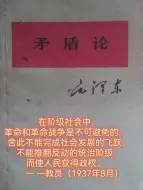 矛盾论
毛泽东
在阶级社会中,
革命和革命战争是不可避免的,
舍此不能完成社会发展的飞跃,
不能推翻反动的统治阶级
而使人民获得政权。
— —教员（1937年8月）